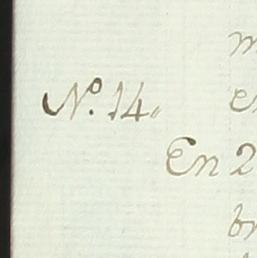 Nº. 14.
En 2